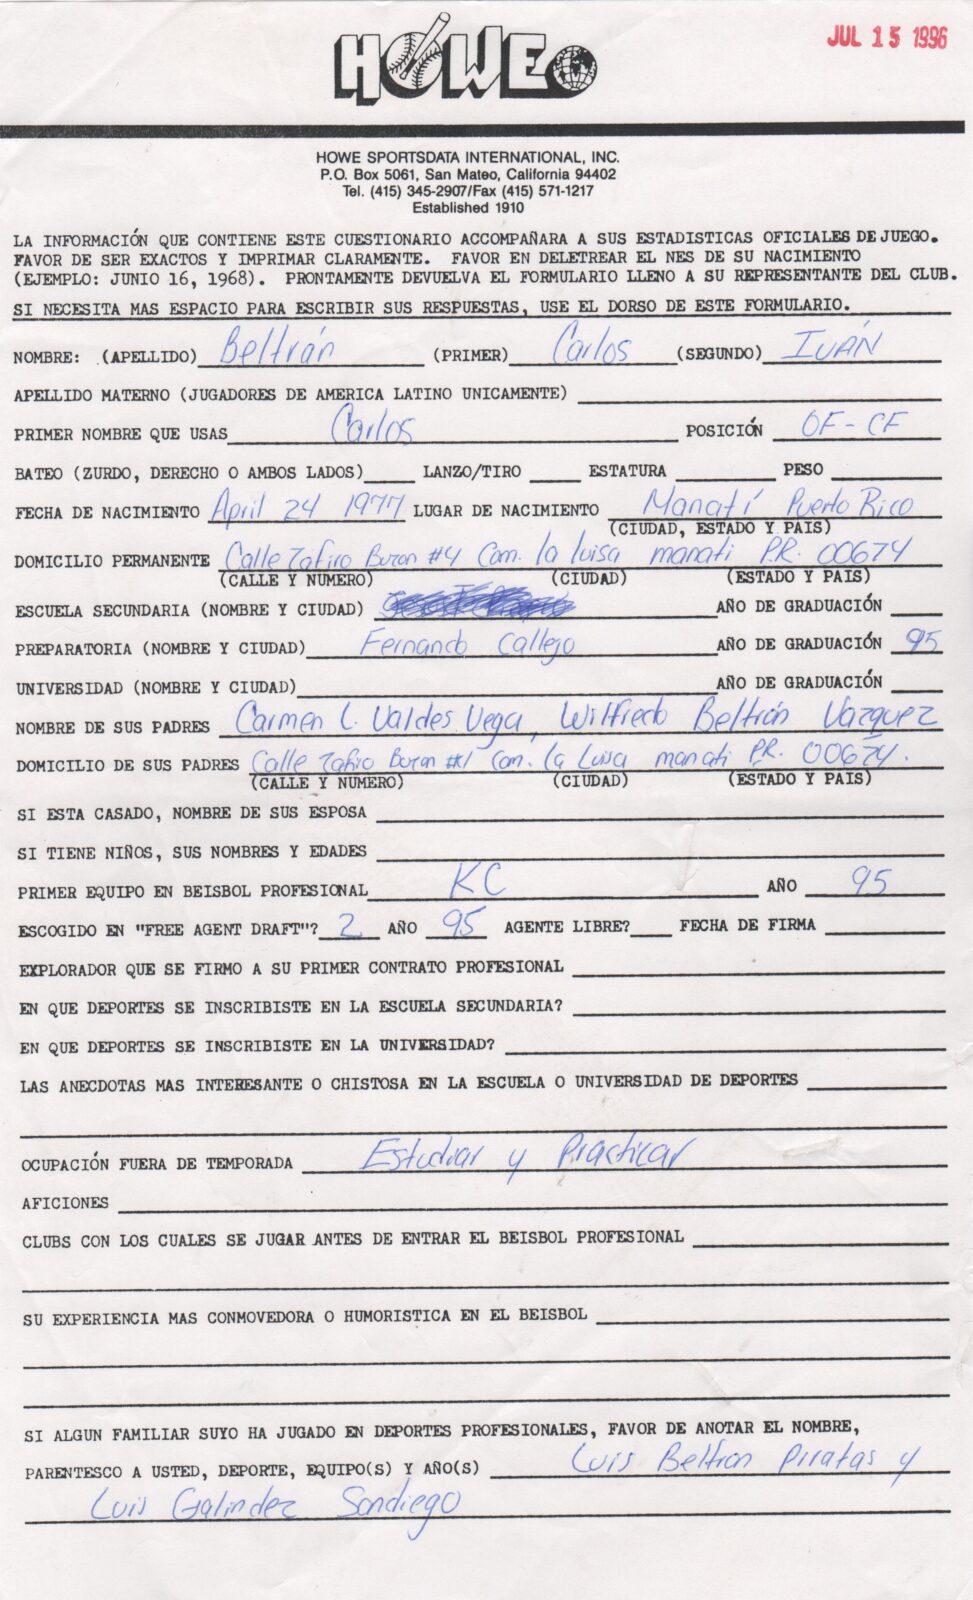 HOWE
JUL 15 1996
HOWE SPORTSDATA INTERNATIONAL, INC.
P.O. Box 5061, San Mateo, California 94402
Tel. (415) 345-2907/Fax (415) 571-1217
Established 1910
LA INFORMACIÓN QUE CONTIENE ESTE CUESTIONARIO ACCOMPAÑARA A SUS ESTADISTICAS OFICIALES DE JUEGO.
FAVOR DE SER EXACTOS Y IMPRIMAR CLARAMENTE. FAVOR EN DELETREAR EL NES DE SU NACIMIENTO
(EJEMPLO: JUNIO 16, 1968). PRONTAMENTE DEVUELVA EL FORMULARIO LLENO A SU REPRESENTANTE DEL CLUB.
SI NECESITA MAS ESPACIO PARA ESCRIBIR SUS RESPUESTAS, USE EL DORSO DE ESTE FORMULARIO.
NOMBRE: (APELLIDO) Beltrán (PRIMER) Carlos (SEGUNDO) IVÁN
APELLIDO MATERNO (JUGADORES DE AMERICA LATINO UNICAMENTE)
PRIMER NOMBRE QUE USAS Carlos POSICIÓN OF-CF
BATEO (ZURDO, DERECHO O AMBOS LADOS) LANZO/TIRO ESTATURA PESO
FECHA DE NACIMIENTO April 24 1977 LUGAR DE NACIMIENTO Manatí Puerto Rico
(CIUDAD, ESTADO Y PAIS)
DOMICILIO PERMANENTE Calle Zafiro Buzon #4 Com. la luisa manati P.R. 00674
(CALLE Y NUMERO) (CIUDAD) (ESTADO Y PAIS)
ESCUELA SECUNDARIA (NOMBRE Y CIUDAD) AÑO DE GRADUACIÓN
PREPARATORIA (NOMBRE Y CIUDAD) Fernando Callejo AÑO DE GRADUACIÓN 95
UNIVERSIDAD (NOMBRE Y CIUDAD) AÑO DE GRADUACIÓN
NOMBRE DE SUS PADRES Carmen L. Valdes Vega, Wilfredo Beltrán Vazquez
DOMICILIO DE SUS PADRES Calle Zafiro Buzon #1 Com. la Luisa manati P.R. 00674.
(CALLE Y NUMERO) (CIUDAD) (ESTADO Y PAIS)
SI ESTA CASADO, NOMBRE DE SUS ESPOSA
SI TIENE NIÑOS, SUS NOMBRES Y EDADES
PRIMER EQUIPO EN BEISBOL PROFESIONAL KC AÑO 95
ESCOGIDO EN "FREE AGENT DRAFT"? 2 AÑO 95 AGENTE LIBRE? FECHA DE FIRMA
EXPLORADOR QUE SE FIRMO A SU PRIMER CONTRATO PROFESIONAL
EN QUE DEPORTES SE INSCRIBISTE EN LA ESCUELA SECUNDARIA?
EN QUE DEPORTES SE INSCRIBISTE EN LA UNIVERSIDAD?
LAS ANECDOTAS MAS INTERESANTE O CHISTOSA EN LA ESCUELA O UNIVERSIDAD DE DEPORTES
OCUPACIÓN FUERA DE TEMPORADA Estudiar y Practicar
AFICIONES
CLUBS CON LOS CUALES SE JUGAR ANTES DE ENTRAR EL BEISBOL PROFESIONAL
SU EXPERIENCIA MAS CONMOVEDORA O HUMORISTICA EN EL BEISBOL
SI ALGUN FAMILIAR SUYO HA JUGADO EN DEPORTES PROFESIONALES, FAVOR DE ANOTAR EL NOMBRE,
PARENTESCO A USTED, DEPORTE, EQUIPO(S) Y AÑO(S) Luis Beltran Pirratas y
Luis Galindez Sandiego